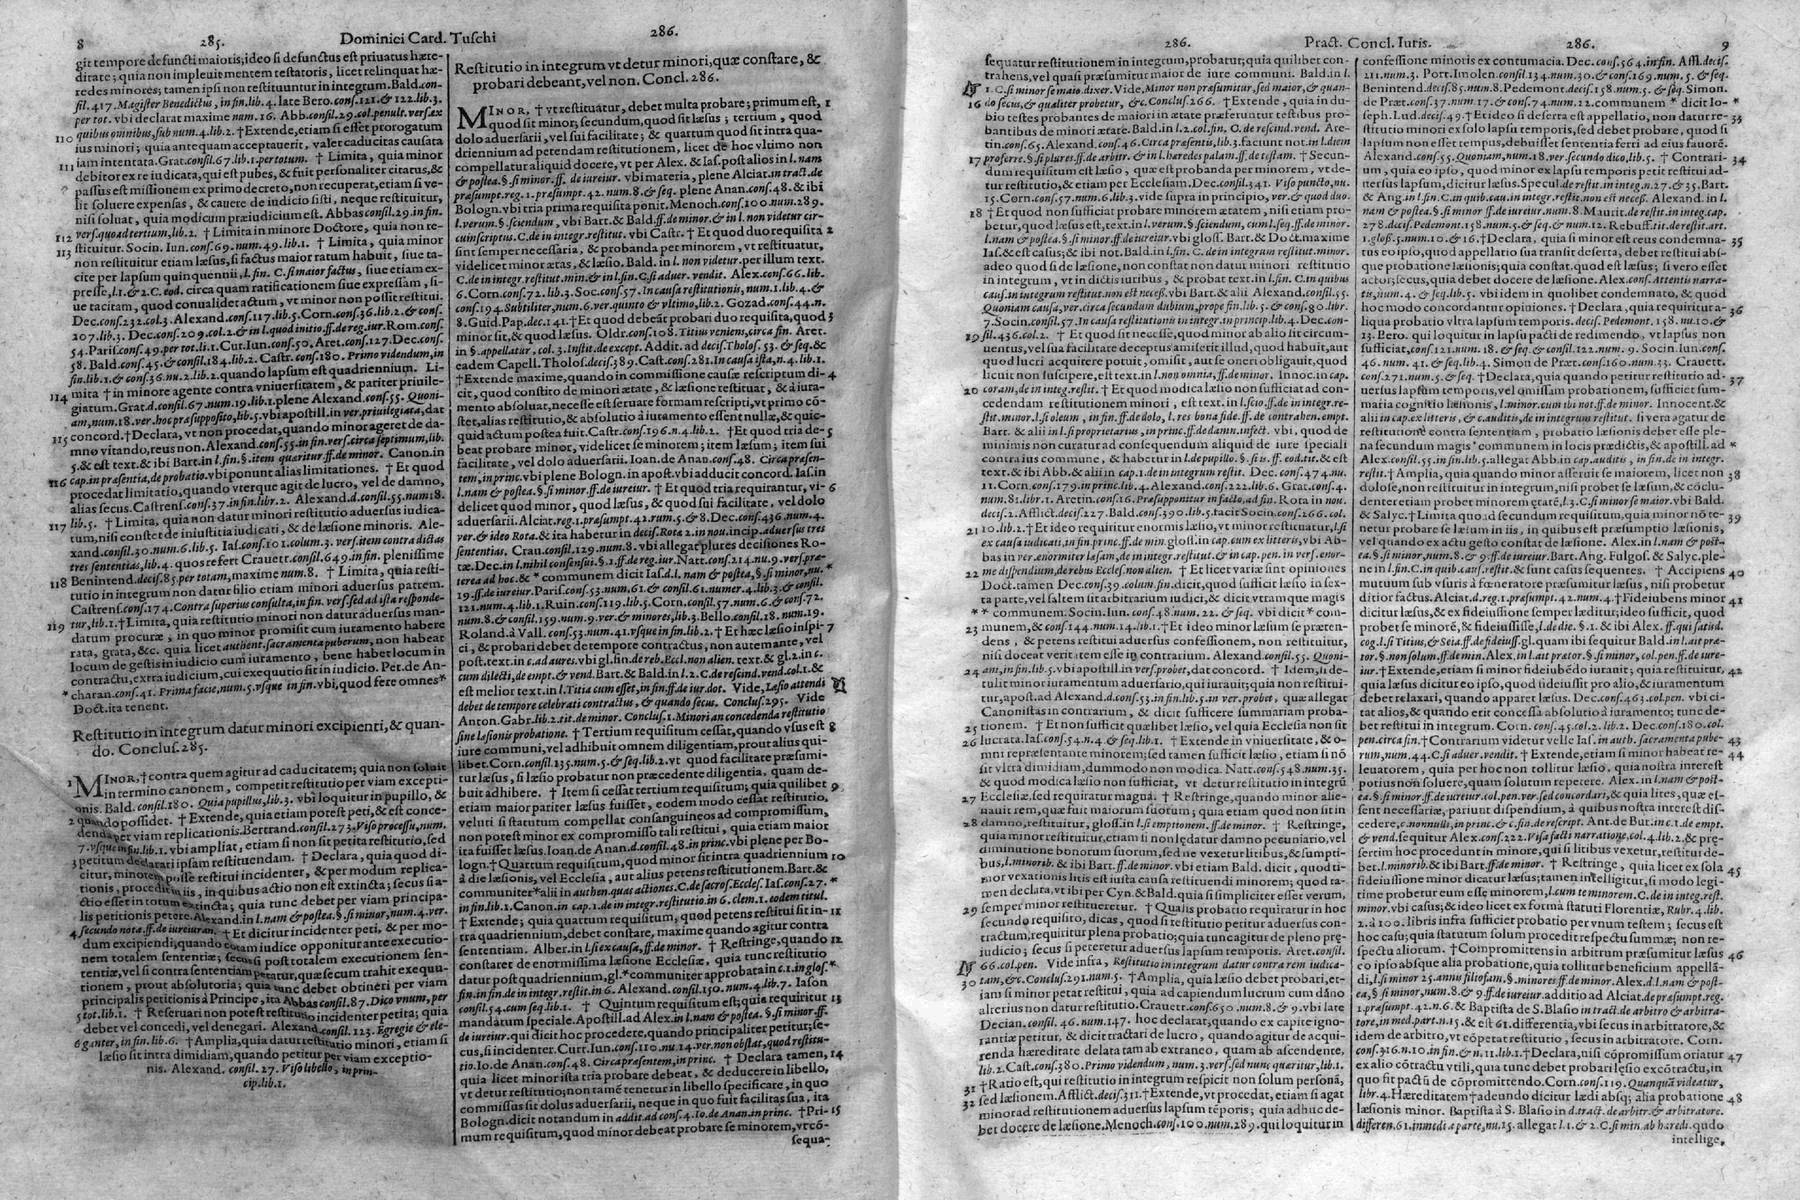 8 285. Dominici Card. Tuſchi 286.
git tempore defuncti maioris; ideo ſi defunctus eſt priuatus hære-
ditate; quia non impleuit mentem teſtatoris, licet relinquat hæ-
redes minores; tamen ipſi non reſtituuntur in integrum. Bald. con-
ſil. 417. Magiſter Benedictus, in fin. lib. 4. late Bero. conſ. 121. & 122. lib. 3.
per tot. vbi declarat maxime num. 16. Abb. conſil. 29. col. penult. verſ. ex
110 quibus omnibus, ſub num. 4. lib. 2. † Extende, etiam ſi eſſet prorogatum
ius minori; quia antequam acceptauerit, valet caducitas cauſata
iam intentata. Grat. conſil. 67. lib. 1. per totum. † Limita, quia minor
111 debitor ex re iudicata, qui eſt pubes, & fuit perſonaliter citatus, &
paſſus eſt miſſionem ex primo decreto, non recuperat, etiam ſi ve-
lit ſoluere expenſas, & cauere de iudicio ſiſti, neque reſtituitur,
niſi ſoluat, quia modicum præiudicium eſt. Abbas conſil. 29. in fin.
verſ. quod tertium, lib. 2. † Limita in minore Doctore, quia non re-
112 ſtituitur. Socin. Iun. conſ. 69. num. 49. lib. 1. † Limita, quia minor
113 non reſtituitur etiam læſus, ſi factus maior ratum habuit, ſiue ta-
cite per lapſum quinquennii, l. fin. C. ſi maior factus, ſiue etiam ex-
preſſe, l. 1. & 2. C. eod. circa quam ratificationem ſiue expreſſam, ſi-
ue tacitam, quod conualidet actum, vt minor non poſſit reſtitui.
Dec. conſ. 232. col. 3. Alexand. conſ. 117. lib. 5. Corn. conſ. 36. lib. 2. & conſ.
207. lib. 3. Dec. conſ. 209. col. 2. & in l. quod initio ff. de reg. iur. Rom. conſ.
54. Pariſ. conſ. 49. per tot. li. 1. Cur. Iun. conſ. 50. Aret. conſ. 127. Dec. conſ.
58. Bald. conſ. 45. & conſil. 184. lib. 2. Caſtr. conſ. 180. Primo videndum, in
fin. lib. 1. & conſ. 36. nu. 2. lib. 2. quando lapſum eſt quadriennium. Li-
mita † in minore agente contra vniuerſitatem, & pariter priuile-
114 giatum. Grat. d. conſil. 67. num. 19. lib. 1. plene Alexand. conſ. 55. Quoni-
am, num. 18. ver. hoc præſuppoſito, lib. 5. vbi apoſtill. in ver. priuilegiata, dat
concord. † Declara, vt non procedat, quando minor ageret de da-
115 mno vitando, reus non. Alexand. conſ. 55. in fin. verſ. circa ſeptimum, lib.
5. & eſt text. & ibi Bart. in l. fin. §. item quæritur ff. de minor. Canon. in
cap. in præſentia, de probatio. vbi ponunt alias limitationes. † Et quod
116 procedat limitatio, quando vterque agit de lucro, vel de damno,
alias ſecus. Caſtrenſ. conſ. 37. in fin. libr. 2. Alexand. d. conſ. 55. num. 18.
117 lib. 5. † Limita, quia non datur minori reſtitutio aduerſus iudica-
tum, niſi conſtet de iniuſtitia iudicati, & de læſione minoris. Ale-
xand. conſil. 30. num. 6. lib. 5. Iaſ. conſ. 101. colum. 3. verſ. item contra dictas
tres ſententias, lib. 4. quos refert Crauett. conſil. 649. in fin. pleniſſime
118 Benintend. deciſ. 85. per totam, maxime num. 8. † Limita, quia reſti-
tutio in integrum non datur filio etiam minori aduerſus patrem.
Caſtrenſ. conſ. 174. Contra ſuperius conſulta, in fin. verſ. ſed ad iſta reſponde-
119 tur, lib. 1. † Limita, quia reſtitutio minori non datur aduerſus man-
datum procuræ, in quo minor promiſit cum iuramento habere
rata, grata, &c. quia licet authent. ſacramenta puberum, non habeat
locum de geſtis in iudicio cum iuramento, bene habet locum in
contractu, extra iudicium, cui exequutio ſit in iudicio. Pet. de An-
* charan. conſ. 41. Prima facie, num. 5. vſque in fin. vbi, quod fere omnes *
Doct. ita tenent.
Reſtitutio in integrum datur minori excipienti, & quan-
do. Concluſ. 285.
1 MINOR, † contra quem agitur ad caducitatem; quia non ſoluit
in termino canonem, competit reſtitutio per viam excepti-
onis. Bald. conſil. 180. Quia pupillus, lib. 3. vbi loquitur in pupillo, &
2 quando poſſidet. † Extende, quia etiam poteſt peti, & eſt conce-
denda per viam replicationis. Bertrand. conſil. 273. Viſo proceſſu, num.
7. vſque in fin. lib. 1. vbi ampliat, etiam ſi non ſit petita reſtitutio, ſed
3 petitum declarati ipſam reſtituendam. † Declara, quia quod di-
citur, minorem poſſe reſtitui incidenter, & per modum replica-
tionis, procedit in iis, in quibus actio non eſt extincta; ſecus ſi a-
ctio eſſet in totum extincta; quia tunc debet per viam principa-
lis petitionis petere. Alexand. in l. nam & poſtea. §. ſi minor, num. 4. ver.
4 ſecundo nota. ff. de iureiuran. † Et dicitur incidenter peti, & per mo-
dum excipiendi, quando coram iudice opponitur ante executio-
nem totalem ſententiæ; ſecus ſi poſt totalem executionem ſen-
tentiæ, vel ſi contra ſententiam petatur, quæ ſecum trahit exequu-
tionem, prout abſolutoria; quia tunc debet obtineri per viam
principalis petitionis à Principe, ita Abbas conſil. 87. Dico vnum, per
5 tot. lib. 1. † Reſeruari non poteſt reſtitutio incidenter petita; quia
debet vel concedi, vel denegari. Alexand. conſil. 123. Egregie & ele-
6 ganter, in fin. lib. 6. † Amplia, quia datur reſtitutio minori, etiam ſi
læſio ſit intra dimidiam, quando petitur per viam exceptio-
nis. Alexand. conſil. 27. Viſo libello, in prin-
cip. lib. 1.
Reſtitutio in integrum vt detur minori, quæ conſtare, &
probari debeant, vel non. Concl. 286.
MINOR, † vt reſtituatur, debet multa probare; primum eſt, 1
quod ſit minor; ſecundum, quod ſit læſus; tertium, quod
dolo aduerſarii, vel ſui facilitate; & quartum quod ſit intra qua-
driennium ad petendam reſtitutionem, licet de hoc vltimo non
compellatur aliquid docere, vt per Alex. & Iaſ. poſt alios in l. nam
& poſtea. §. ſi minor. ff. de iureiur. vbi materia, plene Alciat. in tract. de
præſumpt. reg. 1. præſumpt. 42. num. 8. & ſeq. plene Anan. conſ. 48. & ibi
Bologn. vbi tria prima requiſita ponit. Menoch. conſ. 100. num. 289.
l. verum. §. ſciendum, vbi Bart. & Bald. ff. de minor. & in l. non videtur cir-
cumſcriptus. C. de in integr. reſtitut. vbi Caſtr. † Et quod duo requiſita 2
ſint ſemper neceſſaria, & probanda per minorem, vt reſtituatur,
videlicet minor ætas, & læſio. Bald. in l. non videtur. per illum text.
C. de in integrum reſtitut. min. & in l. fin. C. ſi aduer. vendit. Alex. conſ. 66. lib.
6. Corn. conſ. 72. lib. 3. Soc. conſ. 57. In cauſa reſtitutionis, num. 1. lib. 4. &
conſ. 194. Subtiliter, num. 6. ver. quinto & vltimo, lib. 2. Gozad. conſ. 44. n.
8. Guid. Pap. dec. 141. † Et quod debeāt probari duo requiſita, quod 3
minor ſit, & quod læſus. Oldr. conſ. 108. Titius veniens, circa fin. Aret.
in §. appellatur, col. 3. Inſtit. de except. Addit. ad deciſ. Tholoſ. 53. & ſeq. &
eadem Capell. Tholoſ. deciſ. 389. Caſt. conſ. 281. In cauſa iſta, n. 4. lib. 1.
† Extende maxime, quando in commiſſione cauſæ reſcriptum di- 4
cit, quod conſtito de minor ætate, & læſione reſtituat, & à iura-
mento abſoluat, neceſſe eſt ſeruare formam reſcripti, vt primo cō-
ſtet, alias reſtitutio, & abſolutio à iuramento eſſent nullæ, & quic-
quid actum poſtea fuit. Caſtr. conſ. 196. n. 4. lib. 2. † Et quod tria de- 5
beat probare minor, videlicet ſe minorem; item læſum; item ſui
facilitate, vel dolo aduerſarii. Ioan. de Anan. conſ. 48. Circa præſen-
tem, in princ. vbi plene Bologn. in apoſt. vbi adducit concord. Iaſ. in
l. nam & poſtea. §. ſi minor. ff. de iureiur. † Et quod tria requirantur, vi- 6
delicet quod minor, quod læſus, & quod ſui facilitate, vel dolo
aduerſarii. Alciat. reg. 1. præſumpt. 42. num. 5. & 8. Dec. conſ. 436. num. 4.
ver. & ideo Rota. & ita habetur in deciſ. Rotæ 2. in nou. incip. aduerſus tres
ſententias. Crau. conſil. 129. num. 8. vbi allegat plures deciſiones Ro-
tæ. Dec. in l. nihil conſenſui. §. 1. ff. de reg. iur. Natt. conſ. 214. nu. 9. verſ. præ-
terea ad hoc. & * communem dicit Iaſ. d. l. nam & poſtea, §. ſi minor, nu. *
19. ff. de iureiur. Pariſ. conſ. 53. num. 61. & conſil. 61. numer. 4. lib. 3. & conſil.
121. num. 4. lib. 1. Ruin. conſ. 119. lib. 5. Corn. conſil. 57. num. 6. & conſ. 72.
num. 8. & conſil. 159. num. 9. ver. & minores, lib. 3. Bello. conſil. 18. num. 19.
Roland. à Vall. conſ. 53. num. 41. vſque in fin. lib. 2. † Et hæc læſio inſpi- 7
ci, & probari debet de tempore contractus, & non aute mante, vel
poſt. text. in c. ad aures. vbi gl. fin. de reb. Eccl. non alien. text. & gl. 2. in c.
cum dilecti, de empt. & vend. Bart. & Bald. in l. 2. C. de reſcind. vend. col. 1. &
eſt melior text. in l. Titia cum eſſet, in fin. ff. de iur. dot. Vide, Læſio attendi
debet de tempore celebrati contractus, & quando ſecus. Concluſ. 295. Vide
Anton. Gabr. lib. 2. tit. de minor. Concluſ. 1. Minori an concedenda reſtitutio
ſine læſionis probatione. † Tertium requiſitum ceſſat, quando vſus eſt 8
iure communi, vel adhibuit omnem diligentiam, prout alius qui-
libet. Corn. conſil. 135. num. 5. & ſeq. lib. 2. vt quod facilitate præſumi-
tur læſus, ſi læſio probatur non præcedente diligentia, quam de-
buit adhibere. † Item ſi ceſſat tertium requiſitum; quia quilibet 9
etiam maior pariter læſus fuiſſet, eodem modo ceſſat reſtitutio,
veluti ſi ſtatutum compellat conſanguineos ad compromiſſum,
non poteſt minor ex compromiſſo tali reſtitui, quia etiam maior
ita fuiſſet læſus. Ioan. de Anan. d. conſil. 48. in princ. vbi plene per Bo-
logn. † Quartum requiſitum, quod minor ſit intra quadriennium 10
à die læſionis, vel Eccleſia, aut alius petens reſtitutionem. Bart. &
communiter * alii in authen. quas actiones. C. de ſacroſ. Eccleſ. Iaſ. conſ. 27. *
in fin. lib. 1. Canon. in cap. 1. de in integr. reſtitutio. in 6. clem. 1. eodem titul.
† Extende; quia quartum requiſitum, quod petens reſtitui ſit in- 11
tra quadriennium, debet conſtare, maxime quando agitur contra
ſententiam. Alber. in l. ſi ex cauſa, ff. de minor. † Reſtringe, quando 12
conſtaret de enormiſſima læſione Eccleſiæ, quia tunc reſtitutio
datur poſt quadriennium, gl. * communiter approbata in c. 1. in gloſ. *
fin. in fin. de in integr. reſtit. in 6. Alexand. conſil. 150. num. 4. lib. 7. Iaſon
conſil. 54. cum ſeq. lib. 1. † Quintum requiſitum eſt; quia requiritur 13
mandatum ſpeciale. Apoſtill. ad Alex. in l. nam & poſtea. §. ſi minor. ff.
de iureiur. qui dicit hoc procedere, quando principaliter petitur; ſe-
cus, ſi incidenter. Curt. Iun. conſ. 110. nu. 14. ver. non obſtat, quod reſtitu-
tio. Io. de Anan. conſ. 48. Circa præſentem, in princ. † Declara tamen, 14
quia licet minor iſta tria probare debeat, & deducere in libello,
vt detur reſtitutio; non tamē tenetur in libello ſpecificare, in quo
commiſſus ſit dolus aduerſarii, neque in quo fuit facilitas ſua, ita
Bologn. dicit notandum in addit. ad conſ. 4. Io. de Anan. in princ. † Pri- 15
mum requiſitum, quod minor debeat probare ſe minorem, vt cō-
ſequa-
286. Pract. Concl. Iuris. 286. 9
ſequatur reſtitutionem in integrum, probatur; quia quilibet con-
trahens, vel quaſi præſumitur maior de iure communi. Bald. in l.
1. C. ſi minor ſe maio. dixer. Vide, Minor non præſumitur, ſed maior, & quan-
16 do ſecus, & qualiter probetur, &c. Concluſ. 266. † Extende, quia in du-
bio teſtes probantes de maiori in ætate præferuntur teſtibus pro-
bantibus de minori ætate. Bald. in l. 2. col. fin. C. de reſcind. vend. Are-
tin. conſ. 65. Alexand. conſ. 46. Circa præſentis, lib. 3. faciunt not. in l. diem
17 proferre. §. ſi plures. ff. de arbitr. & in l. hæredes palam. ff. de teſtam. † Secun-
dum requiſitum eſt læſio, quæ probanda per minorem, vt de-
tur reſtitutio, & etiam per Eccleſiam. Dec. conſil. 341. Viſo puncto, nu.
15. Corn. conſ. 57. num. 6. lib. 3. vide ſupra in principio, ver. & quod duo.
18 † Et quod non ſufficiat probare minorem ætatem, niſi etiam pro-
betur, quod læſus eſt, text. in l. verum. §. ſciendum, cum l. ſeq. ff. de minor.
l. nam & poſtea. §. ſi minor. ff. de iureiur. vbi gloſſ. Bart. & Doct. maxime
Iaſ. & eſt caſus; & ibi not. Bald. in l. fin. C. de in integrum reſtitut. minor.
adeo quod ſi de læſione, non conſtat non datur minori reſtitutio
in integrum, vt in dictis iuribus, & probat text. in l. fin. C. in quibus
cauſ. in integrum reſtitut. non eſt neceſ. vbi Bart. & alii Alexand. conſil. 55.
Quoniam cauſa, ver. circa ſecundum dubium, prope fin. lib. 5. & conſ. 80. libr.
7. Socin. conſil. 57. In cauſa reſtitutionis in integr. in princip. lib. 4. Dec. con-
19 ſil. 436. col. 2. † Et quod ſit neceſſe, quod minor ob alio ſit circum-
uentus, vel ſua facilitate deceptus amiſerit illud, quod habuit, aut
quod lucri acquirere potuit, omiſit, aut ſe oneri obligauit, quod
licuit non ſuſcipere, eſt text. in l. non omnia, ff. de minor. Innoc. in cap.
20 coram, de in integ. reſtit. † Et quod modica læſio non ſufficiat ad con-
cedendam reſtitutionem minori, eſt text. in l. ſcio. ff. de in integr. re-
ſtit. minor. l. ſi oleum, in fin. ff. de dolo, l. res bona fide. ff. de contrahen. empt.
Bart. & alii in l. ſi proprietarius, in princ. ff. de damn. infect. vbi, quod de
minimis non curatur ad conſequendum aliquid de iure ſpeciali
contra ius commune, & habetur in l. de pupillo. §. ſi is. ff. eod. tit. & eſt
text. & ibi Abb. & alii in cap. 1. de in integrum reſtit. Dec. conſ. 474. nu.
11. Corn. conſ. 179. in princ. lib. 4. Alexand. conſ. 222. lib. 6. Grat. conſ. 4.
num. 81. libr. 1. Aretin. conſ. 16. Præſupponitur in facto, ad fin. Rota in nou.
deciſ. 2. Afflict. deciſ. 227. Bald. conſ. 390. lib. 5. tacit Socin. conſ. 266. col.
21 10. lib. 2. † Et ideo requiritur enormis læſio, vt minor reſtituatur, l. ſi
ex cauſa iudicati, in fin. princ. ff. de min. gloſſ. in cap. cum ex litteris, vbi Ab-
bas in ver. enormiter læſam, de in integ. reſtitut. & in cap. pen. in verſ. enor-
22 me diſpendium, de rebus Eccleſ. non alien. † Et licet variæ ſint opiniones
Doct. tamen Dec. conſ. 39. colum. fin. dicit, quod ſufficit læſio in ſex-
ta parte, vel ſaltem ſit arbitrarium iudici, & dicit vtramque magis
* * communem. Socin. Iun. conſ. 48. num. 22. & ſeq. vbi dicit * com-
munem, & conſ. 144. num. 14. lib. 1. † Et ideo minor læſum ſe præten-
23 dens, & petens reſtitui aduerſus confeſſionem, non reſtituitur,
niſi doceat veritatem eſſe in contrarium. Alexand. conſil. 55. Quoni-
24 am, in fin. lib. 5. vbi apoſtill. in verſ. probet, dat concord. † Idem, ſi de-
tulit minor iuramentum aduerſario, qui iurauit; quia non reſtitui-
tur, apoſt. ad Alexand. d. conſ. 55. in fin. lib. 5. in ver. probet, quæ allegat
Canoniſtas in contrarium, & dicit ſufficere ſummariam proba-
25 tionem. † Et non ſufficit qualibet læſio, vel quia Eccleſia non ſit
26 lucrata. Iaſ. conſ. 54. n. 4. & ſeq. lib. 1. † Extende in vniuerſitate, & o-
mni repræſentante minorem; ſed tamen ſufficit læſio, etiam ſi nō
ſit vltra dimidiam, dummodo non modica. Natt. conſ. 548. num. 35.
& quod modica læſio non ſufficiat, vt detur reſtitutio in integrū
27 Eccleſiæ, ſed requiratur magna. † Reſtringe, quando minor alie-
nauit rem, quæ fuit maiorum ſuorum; quia etiam quod non ſit in
28 damno, reſtituitur, gloſſ. in l. ſi emptionem. ff. de minor. † Reſtringe,
quia minor reſtituitur, etiam ſi non lædatur damno pecuniario, vel
diminutione bonorum ſuorum, ſed ne vexetur litibus, & ſumpti-
bus, l. minorib. & ibi Bart. ff. de minor. vbi etiam Bald. dicit, quod ti-
mor vexationis litis eſt iuſta cauſa reſtituendi minorem; quod ta-
men declara, vt ibi per Cyn. & Bald. quia ſi ſimpliciter eſſet verum,
29 ſemper minor reſtitueretur. † Qualis probatio requiratur in hoc
ſecundo requiſito, dicas, quod ſi reſtitutio petitur aduerſus con-
tractum, requiritur plena probatio; quia tunc agitur de pleno præ-
iudicio; ſecus ſi peteretur aduerſus lapſum temporis. Aret. conſil.
66. col. pen. Vide infra, Reſtitutio in integrum datur contra rem iudica-
30 tam, &c. Concluſ. 291. num. 5. † Amplia, quia læſio debet probari, et-
iam ſi minor petat reſtitui, quia ad capiendum lucrum cum dāno
alterius non datur reſtitutio. Crauett. conſ. 650. num. 8. & 9. vbi late
Decian. conſil. 46. num. 147. hoc declarat, quando ex capite igno-
rantiæ petitur, & dicit tractari de lucro, quando agitur de acqui-
renda hæreditate delata tam ab extraneo, quam ab aſcendente,
lib. 2. Caſt. conſ. 380. Primo videndum, num. 3. verſ. ſed nunc quæritur, lib. 1.
31 † Ratio eſt, qui reſtitutio in integrum reſpicit non ſolum perſonā,
32 ſed læſionem. Afflict. deciſ. 311. † Extende, vt procedat, etiam ſi agat
minor ad reſtitutionem aduerſus lapſum tēporis; quia adhuc de-
bet docere de læſione. Menoch. conſ. 100. num. 289. qui loquitur in
confeſſione minoris ex contumacia. Dec. conſ. 564. in fin. Affl. deciſ.
211. num. 3. Port. Imolen. conſil. 134. num. 30. & conſ. 169. num. 5. & ſeq.
Benintend. deciſ. 85. num. 8. Pedemont. deciſ. 158. num. 5. & ſeq. Simon.
de Præt. conſ. 37. num. 17. & conſ. 74. num. 12. communem * dicit Io- *
ſeph. Lud. deciſ. 49. † Et ideo ſi deſerta eſt appellatio, non datur re- 33
ſtitutio minori ex ſolo lapſu temporis, ſed debet probare, quod ſi
lapſum non eſſet tempus, debuiſſet ſententia ferri ad eius fauorē.
Alexand. conſ. 55. Quoniam, num. 18. ver. ſecundo dico, lib. 5. † Contrari- 34
um, quia eo ipſo, quod minor ex lapſu temporis petit reſtitui ad-
uerſus lapſum, dicitur læſus. Specul. de reſtit. in integ. n. 27. & 35. Bart.
& Ang. in l. fin. C. in quib. cau. in integr. reſtit. non eſt neceſſ. Alexand. in l.
nam & poſtea. §. ſi minor ff. de iureiur. num. 8. Maurit. de reſtit. in integ. cap.
278. deciſ. Pedemont. 158. num. 5. & ſeq. & num. 12. Rebuff. tit. de reſtit. art.
1. gloſ. 5. num. 10. & 16. † Declara, quia ſi minor eſt reus condemna- 35
tus eo ipſo, quod appellatio ſua tranſit deſerta, debet reſtitui abſ-
que probatione læſionis; quia conſtat, quod eſt læſus; ſi vero eſſet
actor; ſecus, quia debet docere de læſione. Alex. conſ. Attentis narra-
tis, num. 4. & ſeq. lib. 5. vbi idem in quolibet condemnato, & quod
hoc modo concordantur opiniones. † Declara, quia requiritur a- 36
liqua probatio vltra lapſum temporis. deciſ. Pedemont. 158. nu. 10. &
13. Bero. qui loquitur in lapſu pacti de redimendo, vt lapſus non
ſufficiat, conſ. 121. num. 18. & ſeq. & conſil. 122. num. 9. Socin. Iun. conſ.
46. num. 41. & ſeq. lib. 4. Simon de Præt. conſ. 160. num. 33. Crauett.
conſ. 271. num. 5. & ſeq. † Declara, quia quando petitur reſtitutio ad- 37
uerſus lapſum temporis, vel omiſſam probationem, ſufficiet ſum-
maria cognitio læſionis, l. minor. cum ibi not. ff. de minor. Innocent. &
alii in cap. ex litteris, & c. auditis, de in integrum reſtitut. ſi vera agatur de
reſtitutione contra ſententiam, probatio læſionis debet eſſe ple-
na ſecundum magis * communem in locis prædictis, & apoſtill. ad *
Alexand. conſ. 55. in fin. lib. 5. allegat Abb. in cap. auditis, in fin. de in integr.
reſtit. † Amplia, quia minor aſſerit ſe maiorem, licet non 38
doloſe, non reſtituitur in integrum, niſi probet ſe læſum, & cōclu-
denter etiam probet minorem ętatē, l. 3. C. ſi minor ſe maior. vbi Bald.
& Salyc. † Limita quo ad ſecundum requiſitum, quia minor nō te- 39
netur probare ſe læſum in iis, in quibus eſt præſumptio læſionis,
vel quando ex actu geſto conſtat de læſione. Alexand. in l. nam & poſt-
ea. §. ſi minor, num. 8. & 9. ff. de iureiur. Bart. Ang. Fulgoſ. & Salyc. ple-
ne in l. fin. C. in quib. cauſ. reſtit. & ſunt caſus ſequentes. † Accipiens 40
mutuum ſub vſuris à fœneratore præſumitur læſus, niſi probetur
ditior factus. Alciat. d. reg. 1. præſumpt. 42. num. 4. † Fideiubens minor 41
dicitur læſus, & ex fideiuſſione ſemper læditur; ideo ſufficit, quod
probet ſe minorē, & fideiuſſiſſe, l. de die. §. 1. & ibi Alex. ff. qui ſatiſd.
cog. l. ſi Titius, & Seia. ff. de fideiuſſ. gl. quam ibi ſequitur Bald. in l. ait præ-
tor. §. non ſolum. ff. de min. Alex. in l. ait prætor. §. ſi minor, col. pen. ff. de iure-
iur. † Extende, etiam ſi minor fideiubēdo iurauit; quia reſtituitur, 42
quia læſus dicitur eo ipſo, quod fideiuſſit pro alio, & iuramentum
debet relaxari, quando apparet læſus. Dec. conſ. 463. col. pen. vbi ci-
tat alios, & quando erit conceſſa abſolutio à iuramento; tunc de-
bet reſtitui in integrum. Corn. conſ. 45. col. 2. lib. 2. Dec. conſ. 180. col.
pen. circa fin. † Contrarium videtur velle Iaſ. in auth. ſacramenta pube- 43
rum, num. 44. C. ſi aduer. vendit. † Extende, etiam ſi minor habeat re- 44
leuatorem, quia per hoc non tollitur læſio, quia noſtra intereſt
potius non ſoluere, quam ſolutum repetere. Alex. in l. nam & poſt-
ea. §. ſi minor. ff. de iureiur. col. pen. ver. ſed concordari, & quia lites, quæ eſ-
ſent neceſſariæ, pariunt diſpendium, à quibus noſtra intereſt diſ-
cedere, c. nonnulli, in princ. & c. fin. de reſcript. Ant. de But. in c. 1. de empt.
& vend. ſequitur Alex. conſ. 222. Viſa facti narratione, col. 4. lib. 2. & præ-
ſertim hoc procedunt in minore, qui ſi litibus vexetur, reſtitui de-
bet. l. minorib. & ibi Bart. ff. de minor. † Reſtringe, quia licet ex ſola
fideiuſſione minor dicatur læſus; tamen intelligitur, ſi modo legi- 45
time probetur eum eſſe minorem, l. cum te minorem. C. de in integ. reſt.
minor. vbi caſus; & ideo licet ex forma ſtatuti Florentiæ, Rubr. 4. lib.
2. a 100. libris infra ſufficiet probatio per vnum teſtem; ſecus eſt
hoc caſu; quia ſtatutum ſolum procedit reſpectu ſummæ; non re-
ſpectu aliorum. † Compromittens in arbitrum præſumitur læſus 46
eo ipſo abſque alia probatione, quia tollitur beneficium appellā-
di, l. ſi minor 25. annis filioſam. §. minores ff. de minor. Alexand. d. l. nam & poſt-
ea, §. ſi minor, num. 8. & 9. ff. de iureiur. additio ad Alciat. de præſumpt. reg.
1. præſumpt. 42. n. 6. & Baptiſta de S. Blaſio in tract. de arbitro & arbitra-
tore, in med. part. n. 15. & eſt 61. differentia, vbi ſecus in arbitratore, &
idem de arbitro, vt opetat reſtitutio, ſecus in arbitratore. Corn.
conſ. 316. n. 10. in fin. & n. 11. lib. 1. † Declara, niſi cōpromiſſum oriatur 47
ex alio cōtractu vtili, quia tunc debet probari lęſio ex cōtractu, in
quo fit pactū de cōpromittendo. Corn. conſ. 119. Quanquā videatur,
libr. 4. Hæreditatem † adeundo dicitur lædi abſq; alia probatione 48
læſionis minor. Baptiſta à S. Blaſio in d. tract. de arbitr. & arbitratore.
differen. 61. in media parte, nu. 15. allegat l. 1. & 2. C. ſi min. ab hæredi. qūdo
intellige,